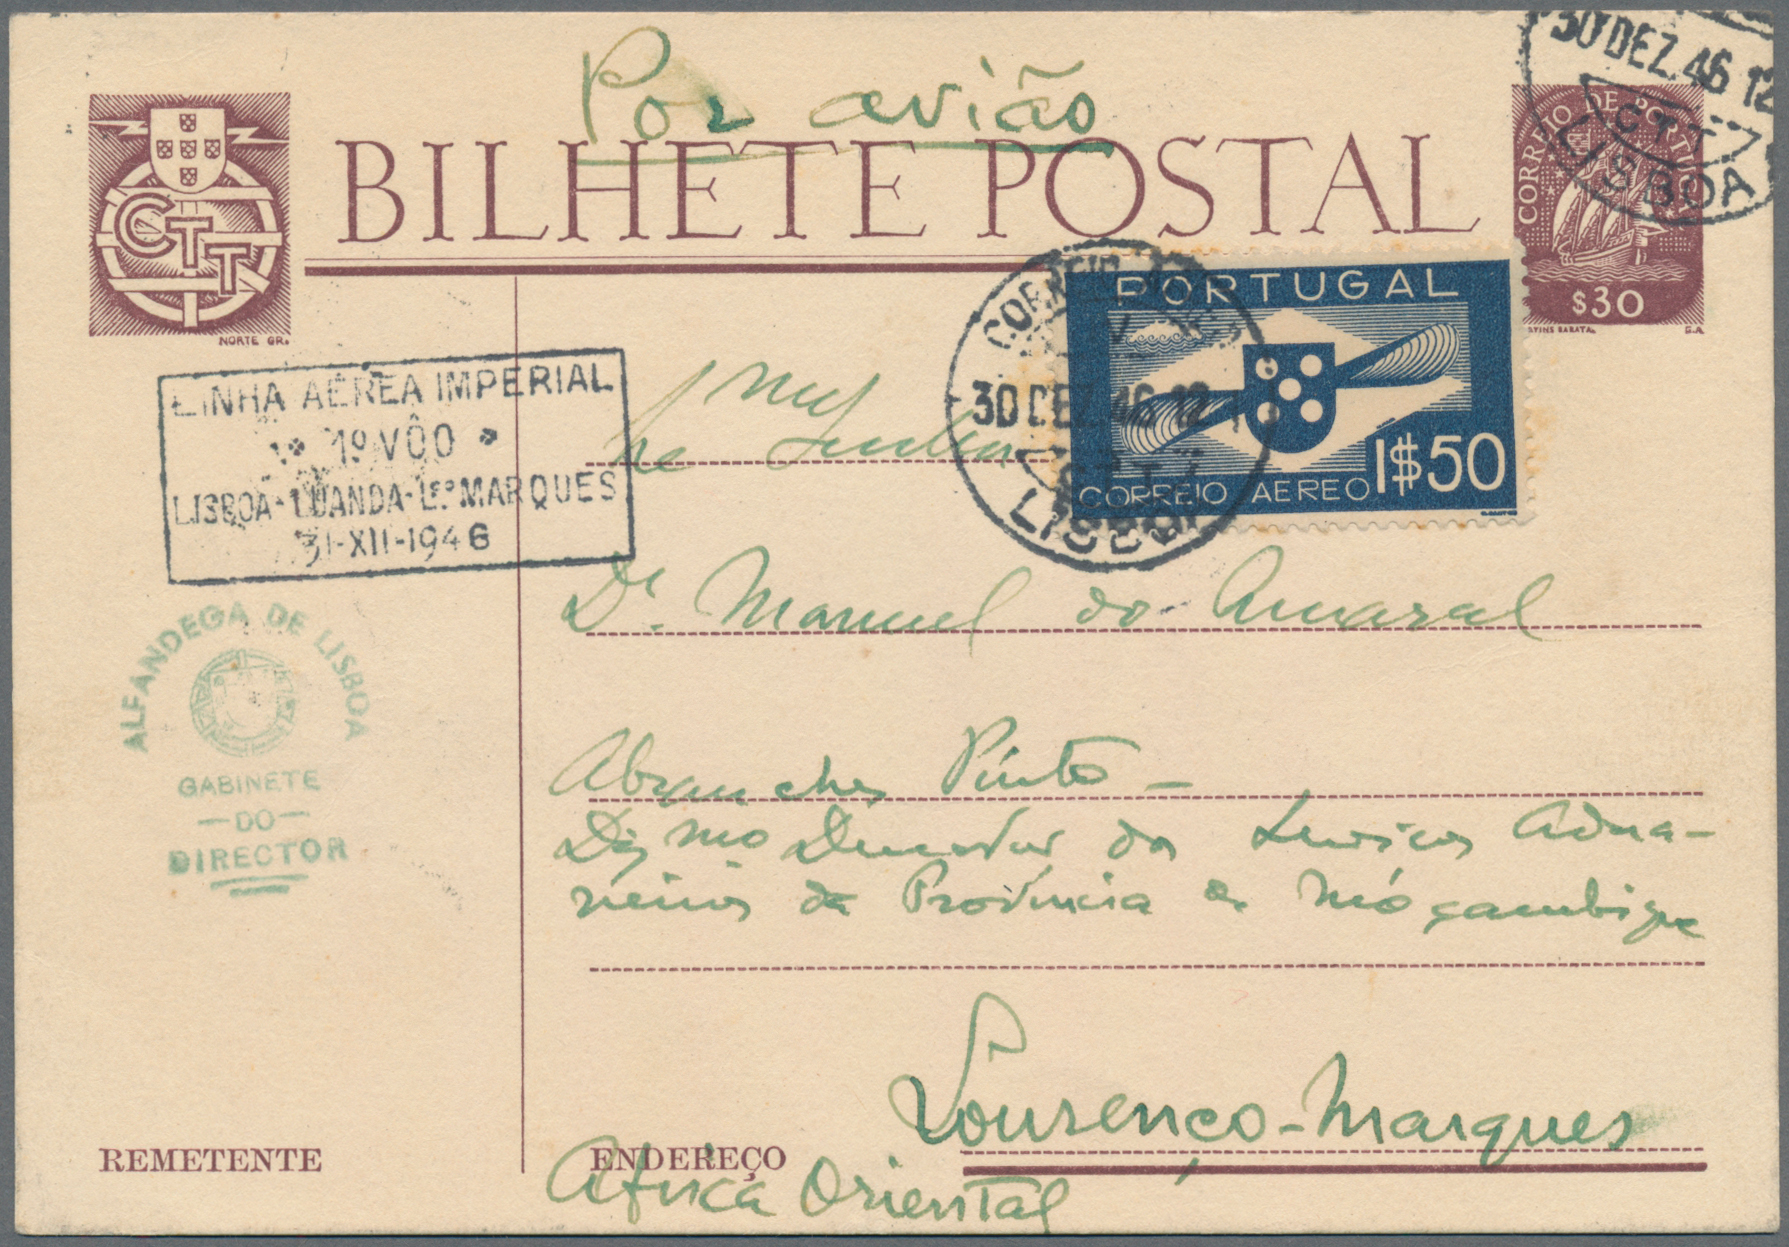 Por avião
BILHETE POSTAL
CTT
NORTE GR.
30 DEZ. 46 12
CTT
LISBOA
CORREIO DE PORTUGAL
$30
MARTINS BARATA.
G.A.
PORTUGAL
CORREIO AEREO 1$50
30 DEZ. 46 12
C.T.T.
LISBOA
LINHA AÉREA IMPERIAL
1º VÔO
LISBOA-LUANDA-Lço MARQUES
31-XII-1946
ALFANDEGA DE LISBOA
GABINETE
—DO—
DIRECTOR
Dr. Manuel do Amaral
Abranches Pinto —
Digmo Director dos Serviços Adua-
neiros da Província de Moçambique
Lourenço-Marques
REMETENTE
ENDEREÇO
Africa Oriental